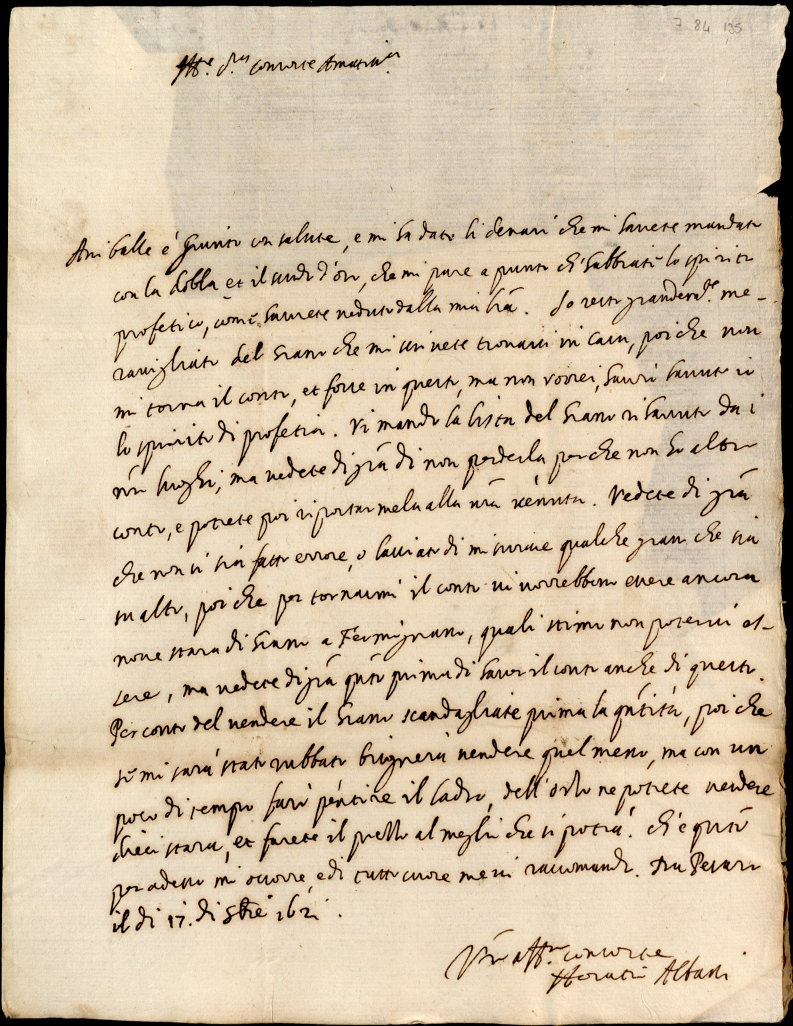 7 84 135
Ill.re Sig.ra consorte Amatiss.a
Aniballe è giunto con salute, e mi ha dato li denari che mi havete mandati
con la dobla et il scudo d'oro, che mi pare a punto ch'habbiate lo spirito
profetico, come havrete veduto dalla mia l̃ra. Io resto grandem.te me-
ravigliato del grano che mi scrivete trovarvi in casa, poi che non
mi torna il conto, et forse in questo, ma non vorrei, havrò havuto io
lo spirito di profetia. Vi mando la lista del grano rihavuto da i
ñri luoghi, ma vedete di gr̃a di non perderla perche non ho altro
conto, e potrete poi riportarmela alla vr̃a venuta. Vedete di gr̃a
che non vi sia fatto errore, o lasciato di misurare qualche grano che sia
su alto, poi che per tornarmi il conto vi vorrebbono essere ancora
nove stara di grano a Fermignano, quali stimo non potervi es-
sere, ma vedete di gr̃a q̃to prima di haver il conto anche di questo.
Per conto del vendere il grano scandagliate prima la q̃tità, poi che
se mi sarà stato rubbato bisognerà vendere quel meno, ma con un
poco di tempo farò pẽtire il ladro, dell'orzo ne potrete vendere
dieci stara, et farete il prezzo al meglio che si potrà. Ch'è q̃to
per adesso mi occorre, e di tutto cuore me vi raccomando. Da Pesaro
il dì 17. di Sbre 1621.
Vr̃o aff.mo consorte
Horatio Albani